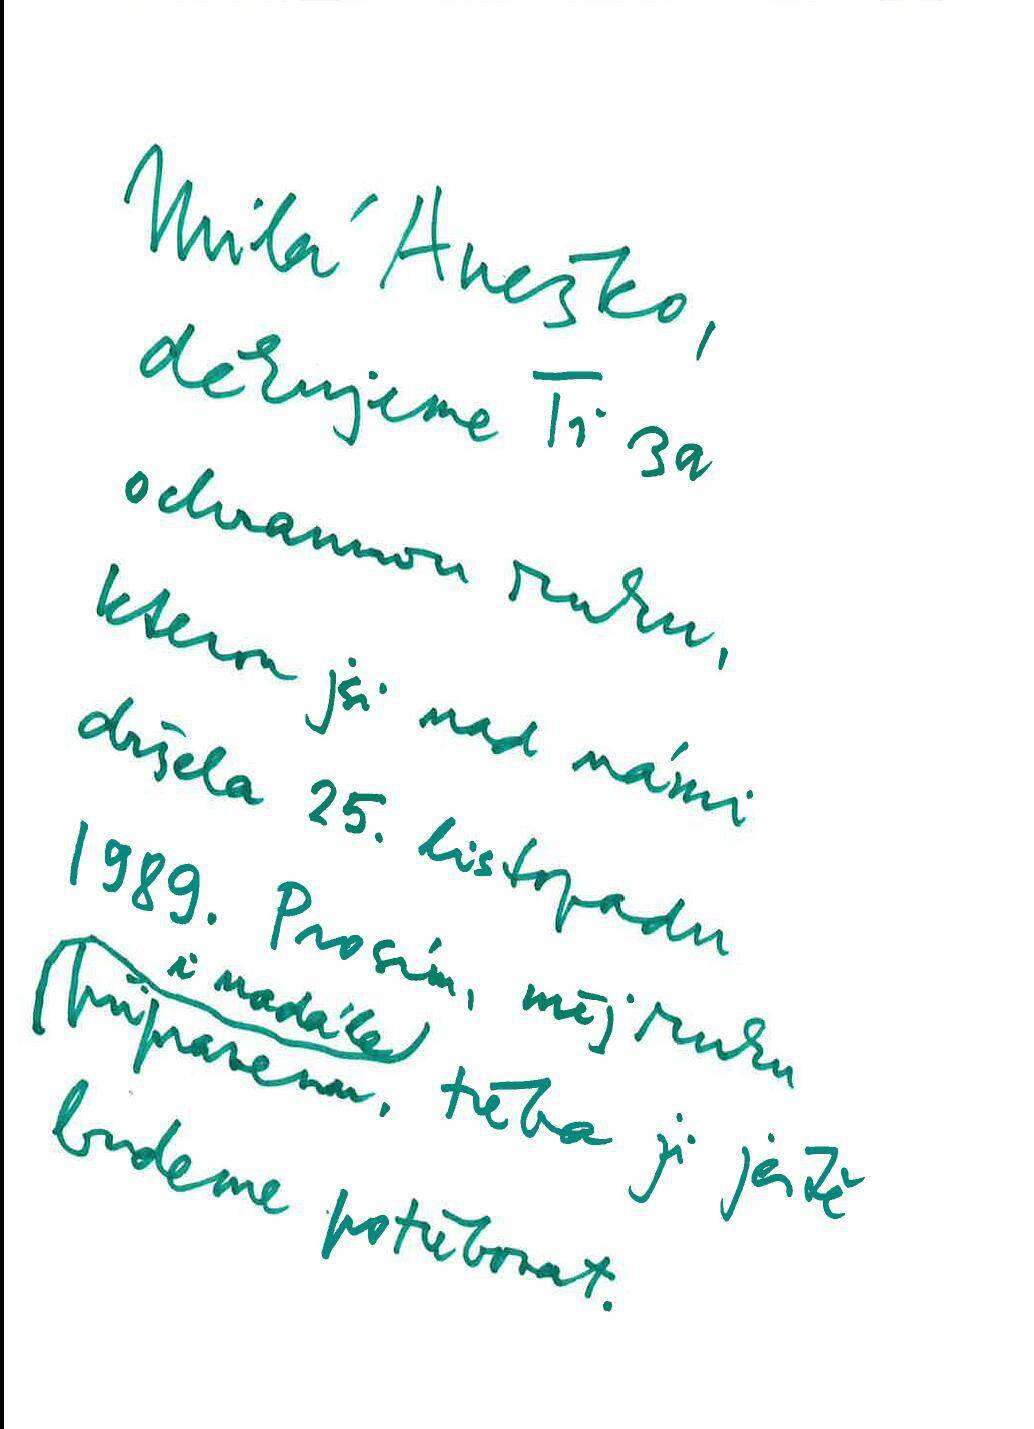 Milá Anežko,
děkujeme Ti za
ochrannou ruku,
kterou jsi nad námi
držela 25. listopadu
1989. Prosím, měj ruku
i nadále
připravenou, třeba ji ještě
budeme potřebovat.